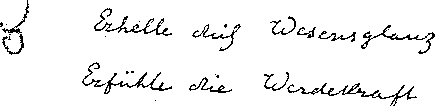 Erhelle dich Wesensglanz
Erfühle die Werdekraft